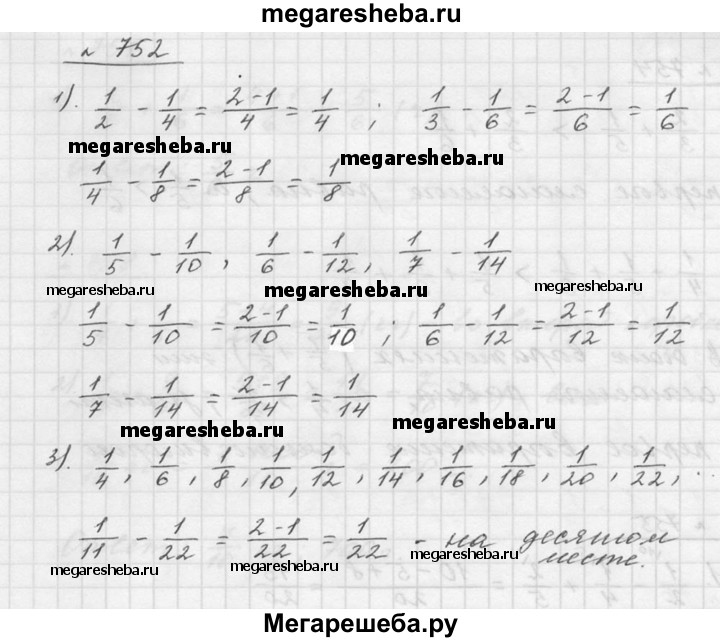 megaresheba.ru
№ 752
1). 1/2 - 1/4 = 2-1/4 = 1/4 ; 1/3 - 1/6 = 2-1/6 = 1/6
megaresheba.ru megaresheba.ru
1/4 - 1/8 = 2-1/8 = 1/8
2). 1/5 - 1/10, 1/6 - 1/12, 1/7 - 1/14
megaresheba.ru megaresheba.ru megaresheba.ru
1/5 - 1/10 = 2-1/10 = 1/10 ; 1/6 - 1/12 = 2-1/12 = 1/12
1/7 - 1/14 = 2-1/14 = 1/14
megaresheba.ru megaresheba.ru
3). 1/4, 1/6, 1/8, 1/10, 1/12, 1/14, 1/16, 1/18, 1/20, 1/22, .
1/11 - 1/22 = 2-1/22 = 1/22 - на десятом
месте.
megaresheba.ru megaresheba.ru megaresheba.ru
Мегарешеба.ру